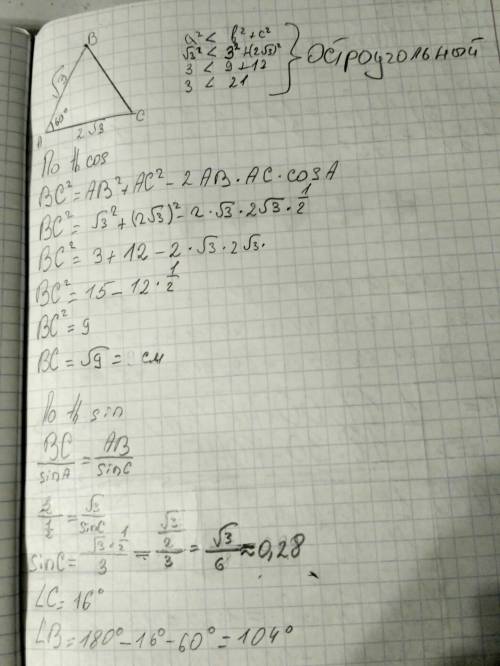 B
√3
60°
A
C
2√3
a² < b² + c²
√3² < 3² + (2√3)²
3 < 9 + 12
3 < 21
Остроугольный
По th cos
BC² = AB² + AC² - 2 AB · AC · cos A
BC² = √3² + (2√3)² - 2 · √3 · 2√3 · 1/2
BC² = 3 + 12 - 2 · √3 · 2√3 ·
BC² = 15 - 12 · 1/2
BC² = 9
BC = √9 = см
По th sin
BC/sin A = AB/sin C
3/(1/2) = √3/sin C
sin C = (√3 · 1/2)/3 = (√3/2)/3 = √3/6 ≈ 0,28
∠C = 16°
∠B = 180° - 16° - 60° = 104°